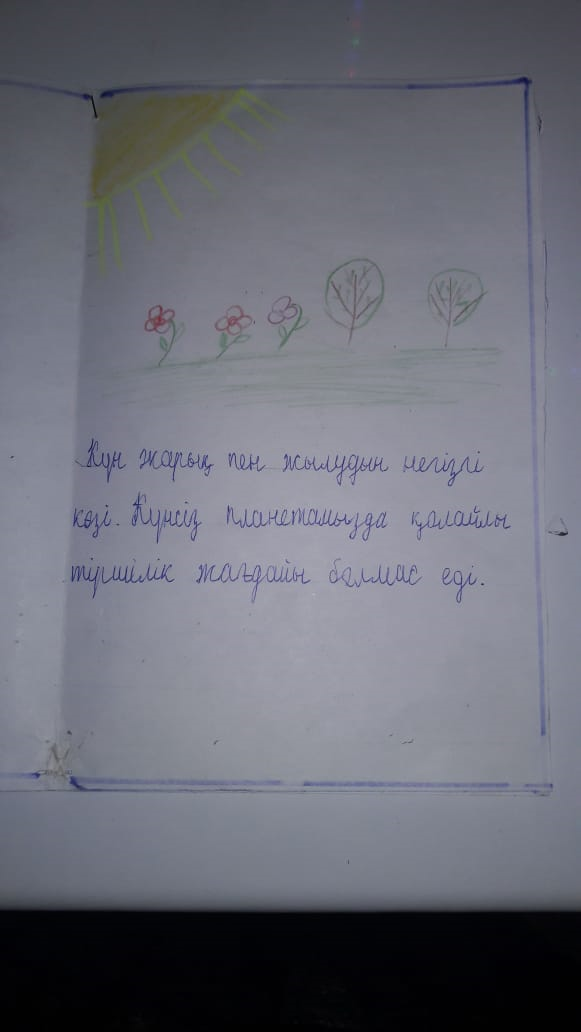 Күн жарық пен жылудын негізгі
көзі. Күнсіз планетамызда қолайлы
тіршілік жағдайы болмас еді.